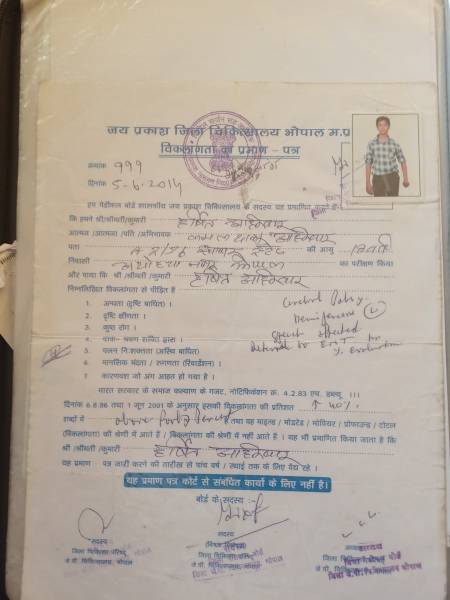 जय प्रकाश जिला चिकित्सालय भोपाल म.प्र
विकलांगता का प्रमाण - पत्र
क्रमांक 999
दिनांक 5-6-2014
हम मेडिकल बोर्ड शासकीय जय प्रकाश चिकित्सालय के सदस्य यह प्रमाणित करते हैं
कि हमने श्री/श्रीमती/कुमारी हर्षित अहिरवार
आत्मज /आत्मजा /पति /अभिभावक कमल अहिरवार
पता की आयु
निवासी अयोध्या नगर भोपाल का परीक्षण किया
और पाया कि श्री /श्रीमती /कुमारी हर्षित अहिरवार
निम्नलिखित विकलांगता से पीड़ित है
1. अन्धता (दृष्टि बाधित) ।
2. दृष्टि क्षीणता ।
3. कुष्ठ रोग ।
4. वाक- श्रवण शक्ति द्वारा ।
5. चलन नि:शक्तता (अस्थि बाधित)
6. मानसिक मंदता / रुग्णता (रिटार्डेशन) ।
7. कारणवश जो अंग आहत हो गया है ।
Cerebral Palsy
Hemiparesis (L)
Speech affected
Referred to ENT for
Evaluation
भारत सरकार के समाज कल्याण के गजट, नोटिफिकेशन क्र. 4.2.83 एच. डब्ल्यू. III
दिनांक 6.8.86 तथा 1 जून 2001 के अनुसार इसकी विकलांगता का प्रतिशत ↑ 40%
शब्दों में above forty percent है तथा यह माइल्ड / मोडरेट / सीवियर / प्रोफाउन्ड / टोटल
(विकलांगता) की श्रेणी में आते हैं / विकलांगता की श्रेणी में नहीं आते है । यह भी प्रमाणित किया जाता है कि
श्री /श्रीमती /कुमारी हर्षित अहिरवार
यह प्रमाण पत्र जारी करने की तारीख से पांच वर्ष / स्थाई तक के लिए वैध रहे ।
यह प्रमाण पत्र कोर्ट से संबंधित कार्यो के लिए नहीं है।
बोर्ड के सदस्य :-
सदस्य
जिला चिकित्सा परिषद्
जे.पी. चिकित्सालय, भोपाल
सदस्य
जिला चिकित्सा
जे.पी. चिकित्सालय, भोपाल
अध्यक्ष